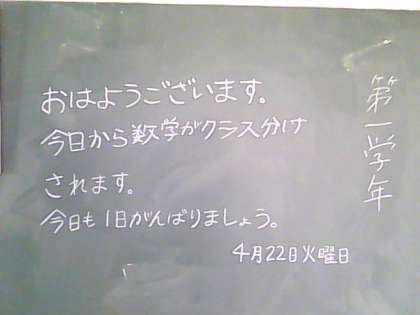 第一学年
おはようございます。
今日から数学がクラス分け
されます。
今日も1日がんばりましょう。
4月22日火曜日